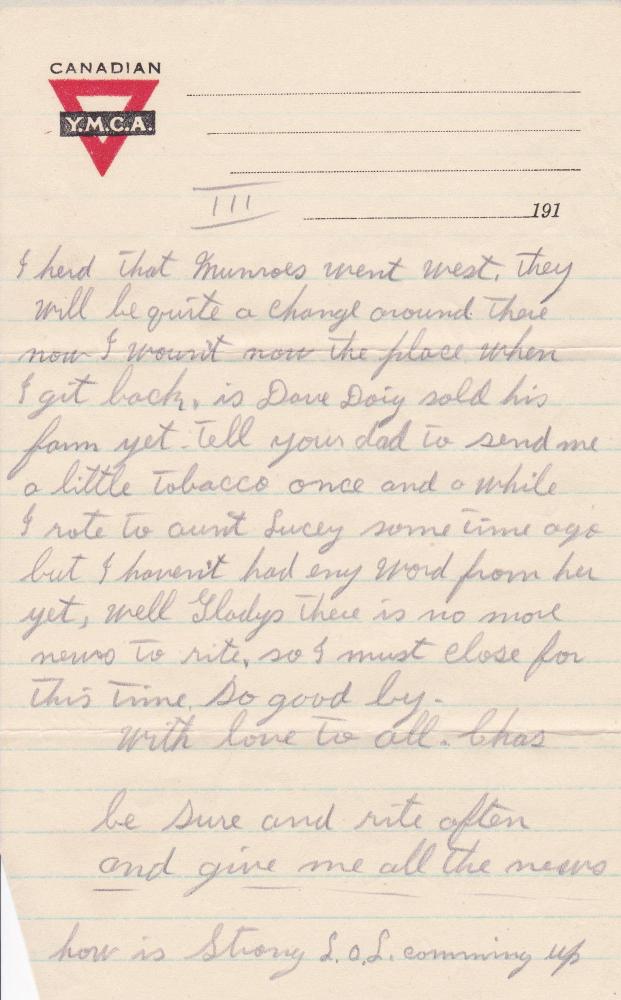 CANADIAN
Y.M.C.A.
III
191
I herd that Munroes went west. they
will be quite a change around there
now I wount now the place when
I git back. is Dave Doig sold his
farm yet. tell your dad to send me
a little tobacco once and a while
I rote to aunt Lucey some time ago
but I havent had eny word from her
yet, well Gladys there is no more
news to rite. so I must close for
this time. So good by.
With love to all. Chas
be sure and rite often
and give me all the news
how is Strong L.O.L. comming up